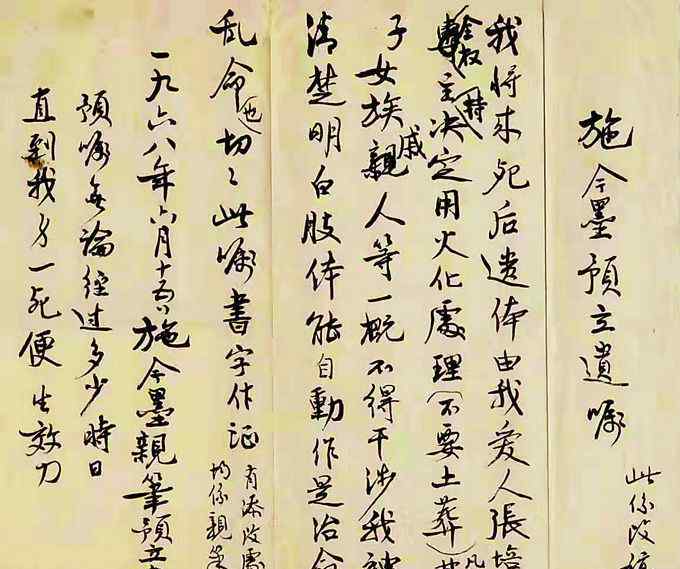 施今墨預立遺嘱
此係改
我将来死后遗体由我爱人張培
全权主持决定用火化處理（不要土葬）凡
子女族親戚人等一概不得干涉我神
清楚明白肢体能自動作是治命
乱命也切々此嘱書字作证
有添改處
均係親筆
一九六八年六月十五 施今墨親筆預立
預嘱無論經过多少時日
直到我身一死便生效力